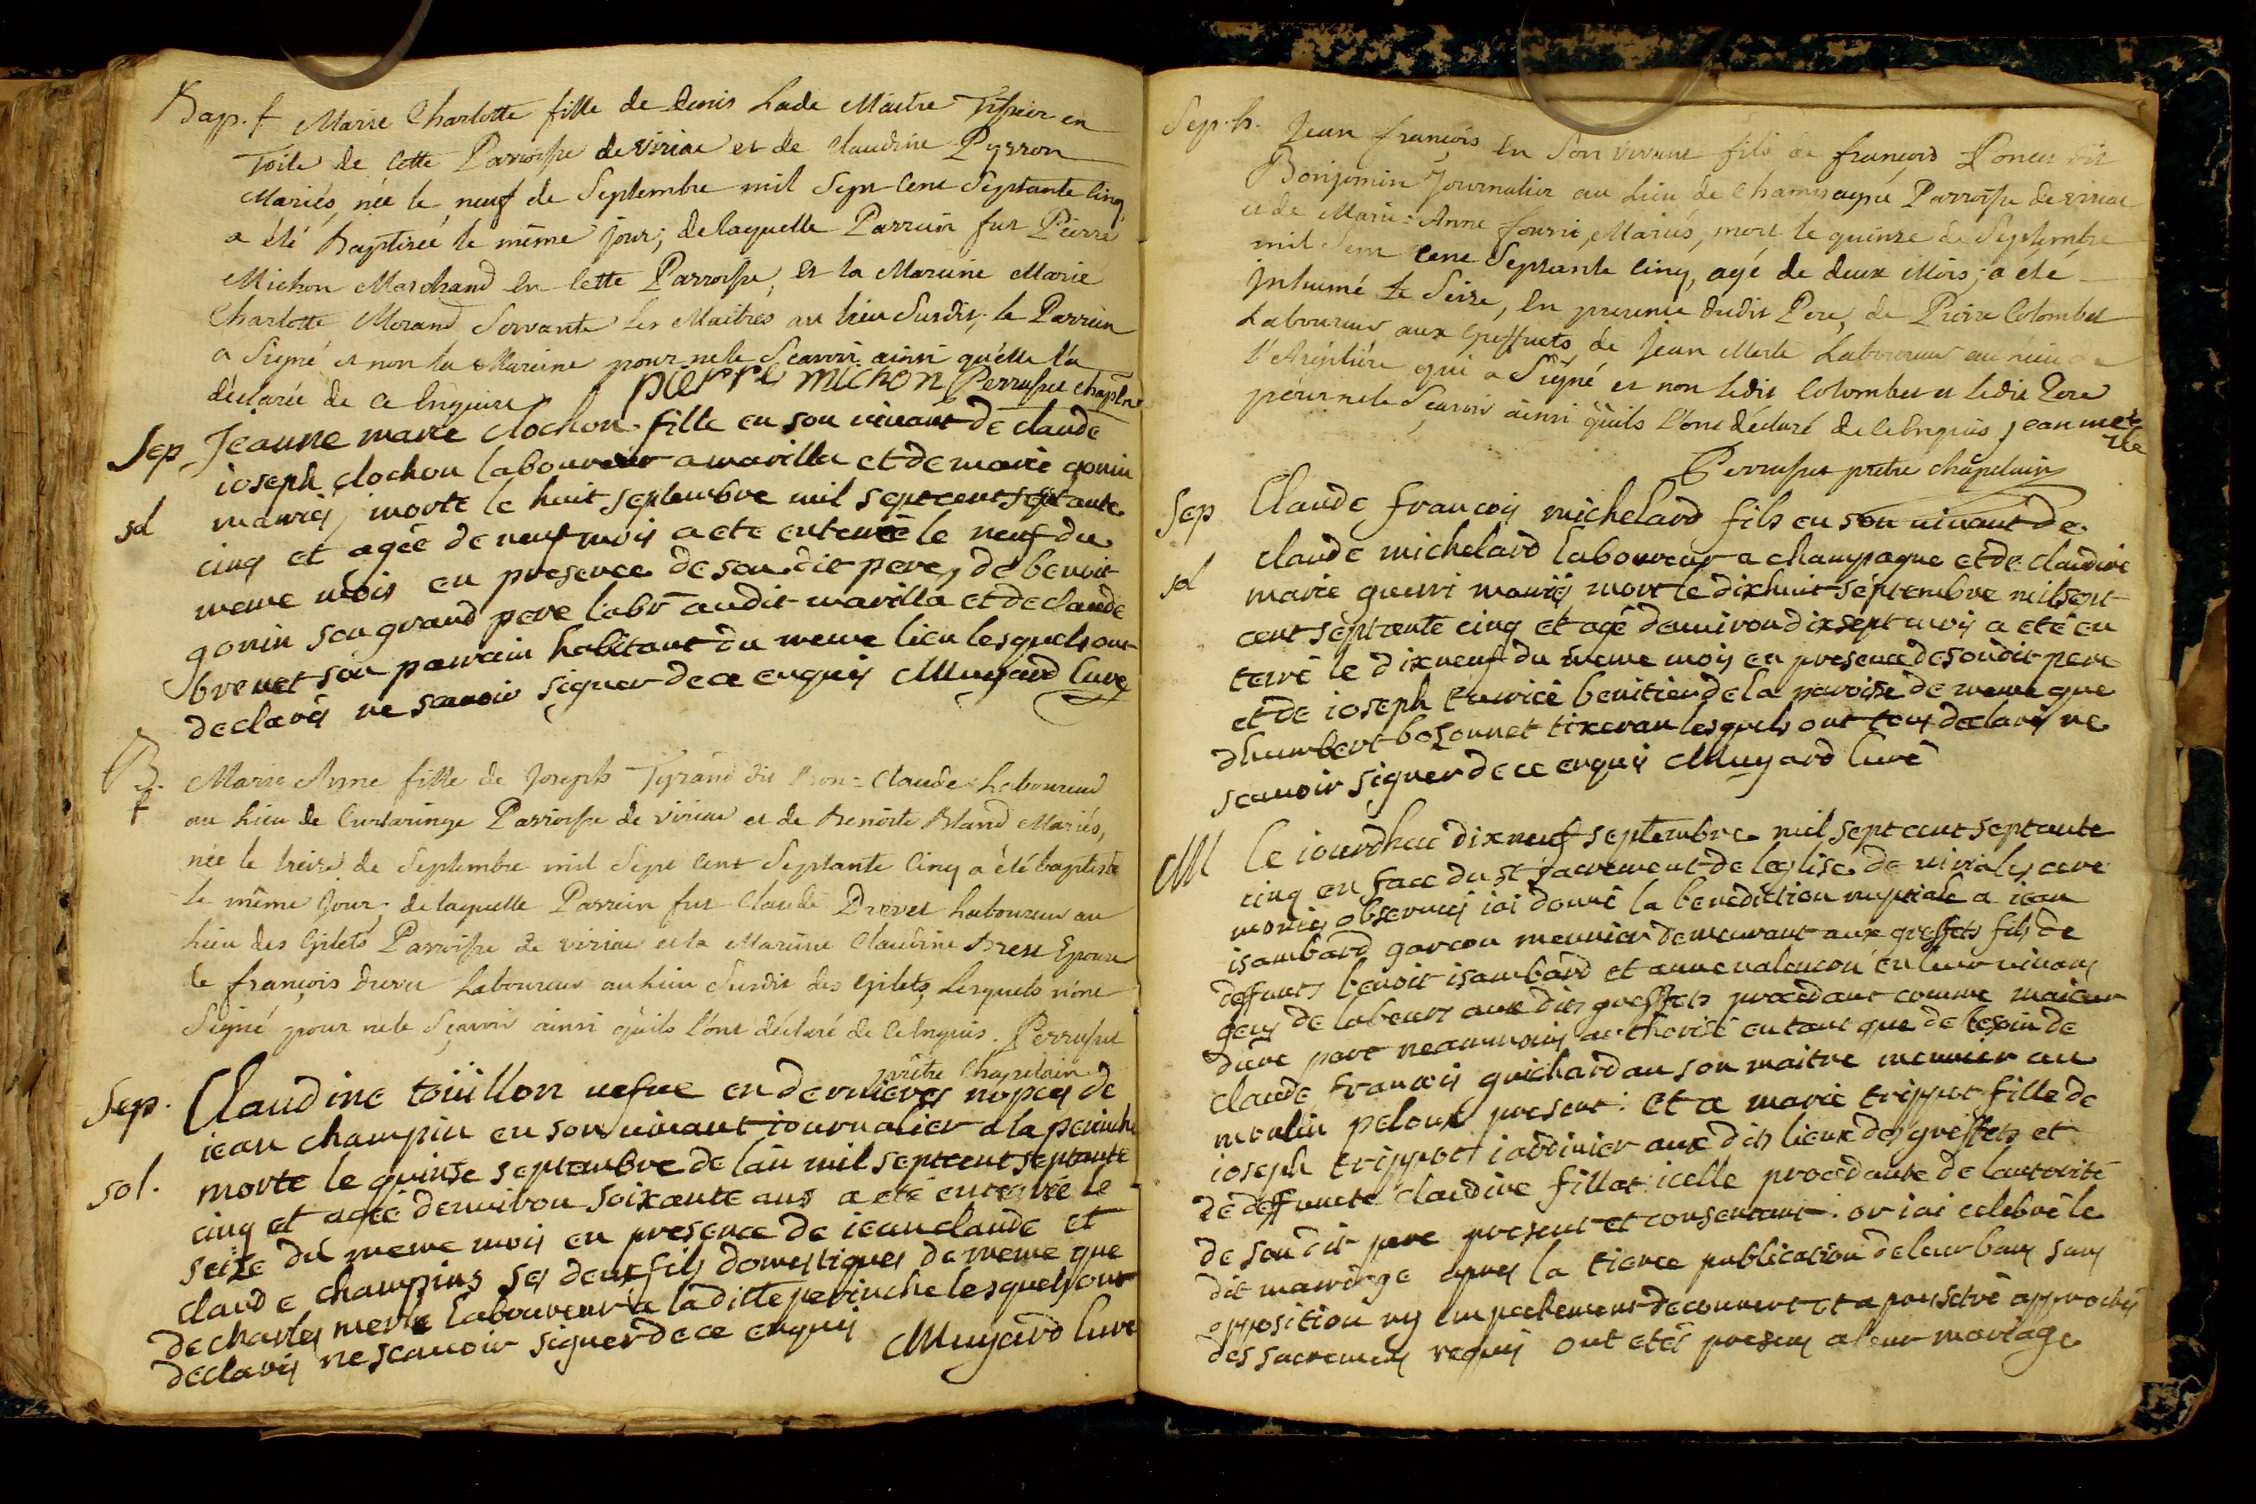 Bap. f Marie Charlotte fille de Denis Lade Maitre Tissier en
Toile de cette Parroisse de viriac et de Claudine Pyrron
Mariés, née le neuf de Septembre mil Sept Cent Septante Cinq,
a été Baptisée le même jour; de laquelle Parrain fut Pierre
Michon Marchand en cette Parroisse, et la Maraine Marie
Charlotte Morand Servante les Maitres au lieu Susdit; le Parrain
a Signé et non la Maraine pour ne le Scavoir ainsi qu'elle l'a
déclarée de ce enquise pierre michon Perruset chapln
Sep Jeanne marie clochon fille en son vivant de claude
joseph clochon laboureur a marilla et de marie gonin
sol mariés, morte le huit septembre mil sept cent septante
cinq et agée de neuf mois a ete enterré le neuf du
meme mois en presence de son dit pere, de benoit
gonin son grand pere labr audit marilla et de claude
brevet son parrain habitant du meme lieu lesquels ont
declarés ne scavoir signer de ce enquis Muyard Curé
B. f Marie Anne fille de Joseph Tyrand dit Bon=Claude Laboureur
au Lieu de Curtaringe Parroisse de viriac et de Benoite Bland Mariés,
née le treize de Septembre mil Sept Cent Septante Cinq a été baptisée
le même Jour; de laquelle Parrain fut Claude Drevet Laboureur au
Lieu des Gilets Parroisse de viriac et la Maraine Claudine Epouse
de françois Laboureur au Lieu Susdit des Gilets, Lesquels n'ont
Signé pour ne le Sçavoir ainsi qu'ils l'ont déclaré de ce Enquis. Perruset
prêtre Chapelain
Sep. Claudine toüillon vefve en dernieres nopces de
jean champin en son vivant journalier a la perinche
sol. morte le quinze septembre de l'an mil sept cent septante
cinq et agée denviron soixante ans a eté enterrée le
seize du meme mois en presence de jean claude et
claude champins ses deux fils domestiques de meme que
de charles merle laboureur a la ditte perinche lesquels ont
declarés ne scavoir signer de ce enquis Muyard Curé
Sep. h. Jean françois en Son vivant fils de françois Poncet dit
Bonjemin Journalier au Lieu de Champagne Parroisse de viriac
et de Marie=Anne Mariés, mort le quinze de Septembre
mil Sept cent Septante Cinq, agé de deux Mois; a été
inhumé le Seize, en presence dudit Pere, de Pierre Colombet
Laboureur aux Greffets de Jean Merle Laboureur au
qui a Signé et non ledit Colombet et ledit Pere
pour ne le Sçavoir ainsi qu'ils l'ont déclaré de ce enquis jean merle
Perruset prêtre chapelain
Sep Claude francois michelard fils en son vivant de
claude michelard laboureur a champagne et de claudine
sol marie guerri mariés mort le dixhuit septembre mil sept
cent septante cinq et agé denviron dix sept mois a eté en
terré le dixneuf du meme mois en presence de son dit pere
et de joseph benitier de la paroisse de meme que
dhumbert bozonnet tixeran lesquels ont tous declarés ne
scavoir signer de ce enquis Muyard Curé
M Ce jourdhuc dixneuf septembre mil sept cent septante
cinq en face du st sacrement de leglise de viria les cere
monies observées jai donné la benediction nuptiale a jean
isambard garcon meunier demeurant aux greffets fils de
deffunts benoit isambard et anne valencon en leur vivans
gens de labeurs aux dits greffets procedant comme majeur
dune part neanmoins authorisé en tant que de besoin de
claude francois guichard an son maitre meunier au
moulin peloux present: et a marie trippot fille de
joseph trippot jardinier aux dits lieux des greffets et
de deffuncte claudine fillat icelle procedante de lautorité
de son dit pere present et consentant: or jai celebré le
dit mariage apres la tierce publication de leur bans sans
opposition ny empechement decouvert
des sacremens requis ont etés presens a leur mariage